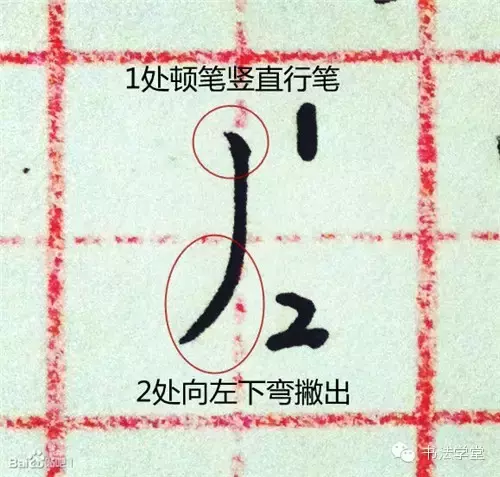 1处顿笔竖直行笔
1
2
2处向左下弯撇出
书法学堂